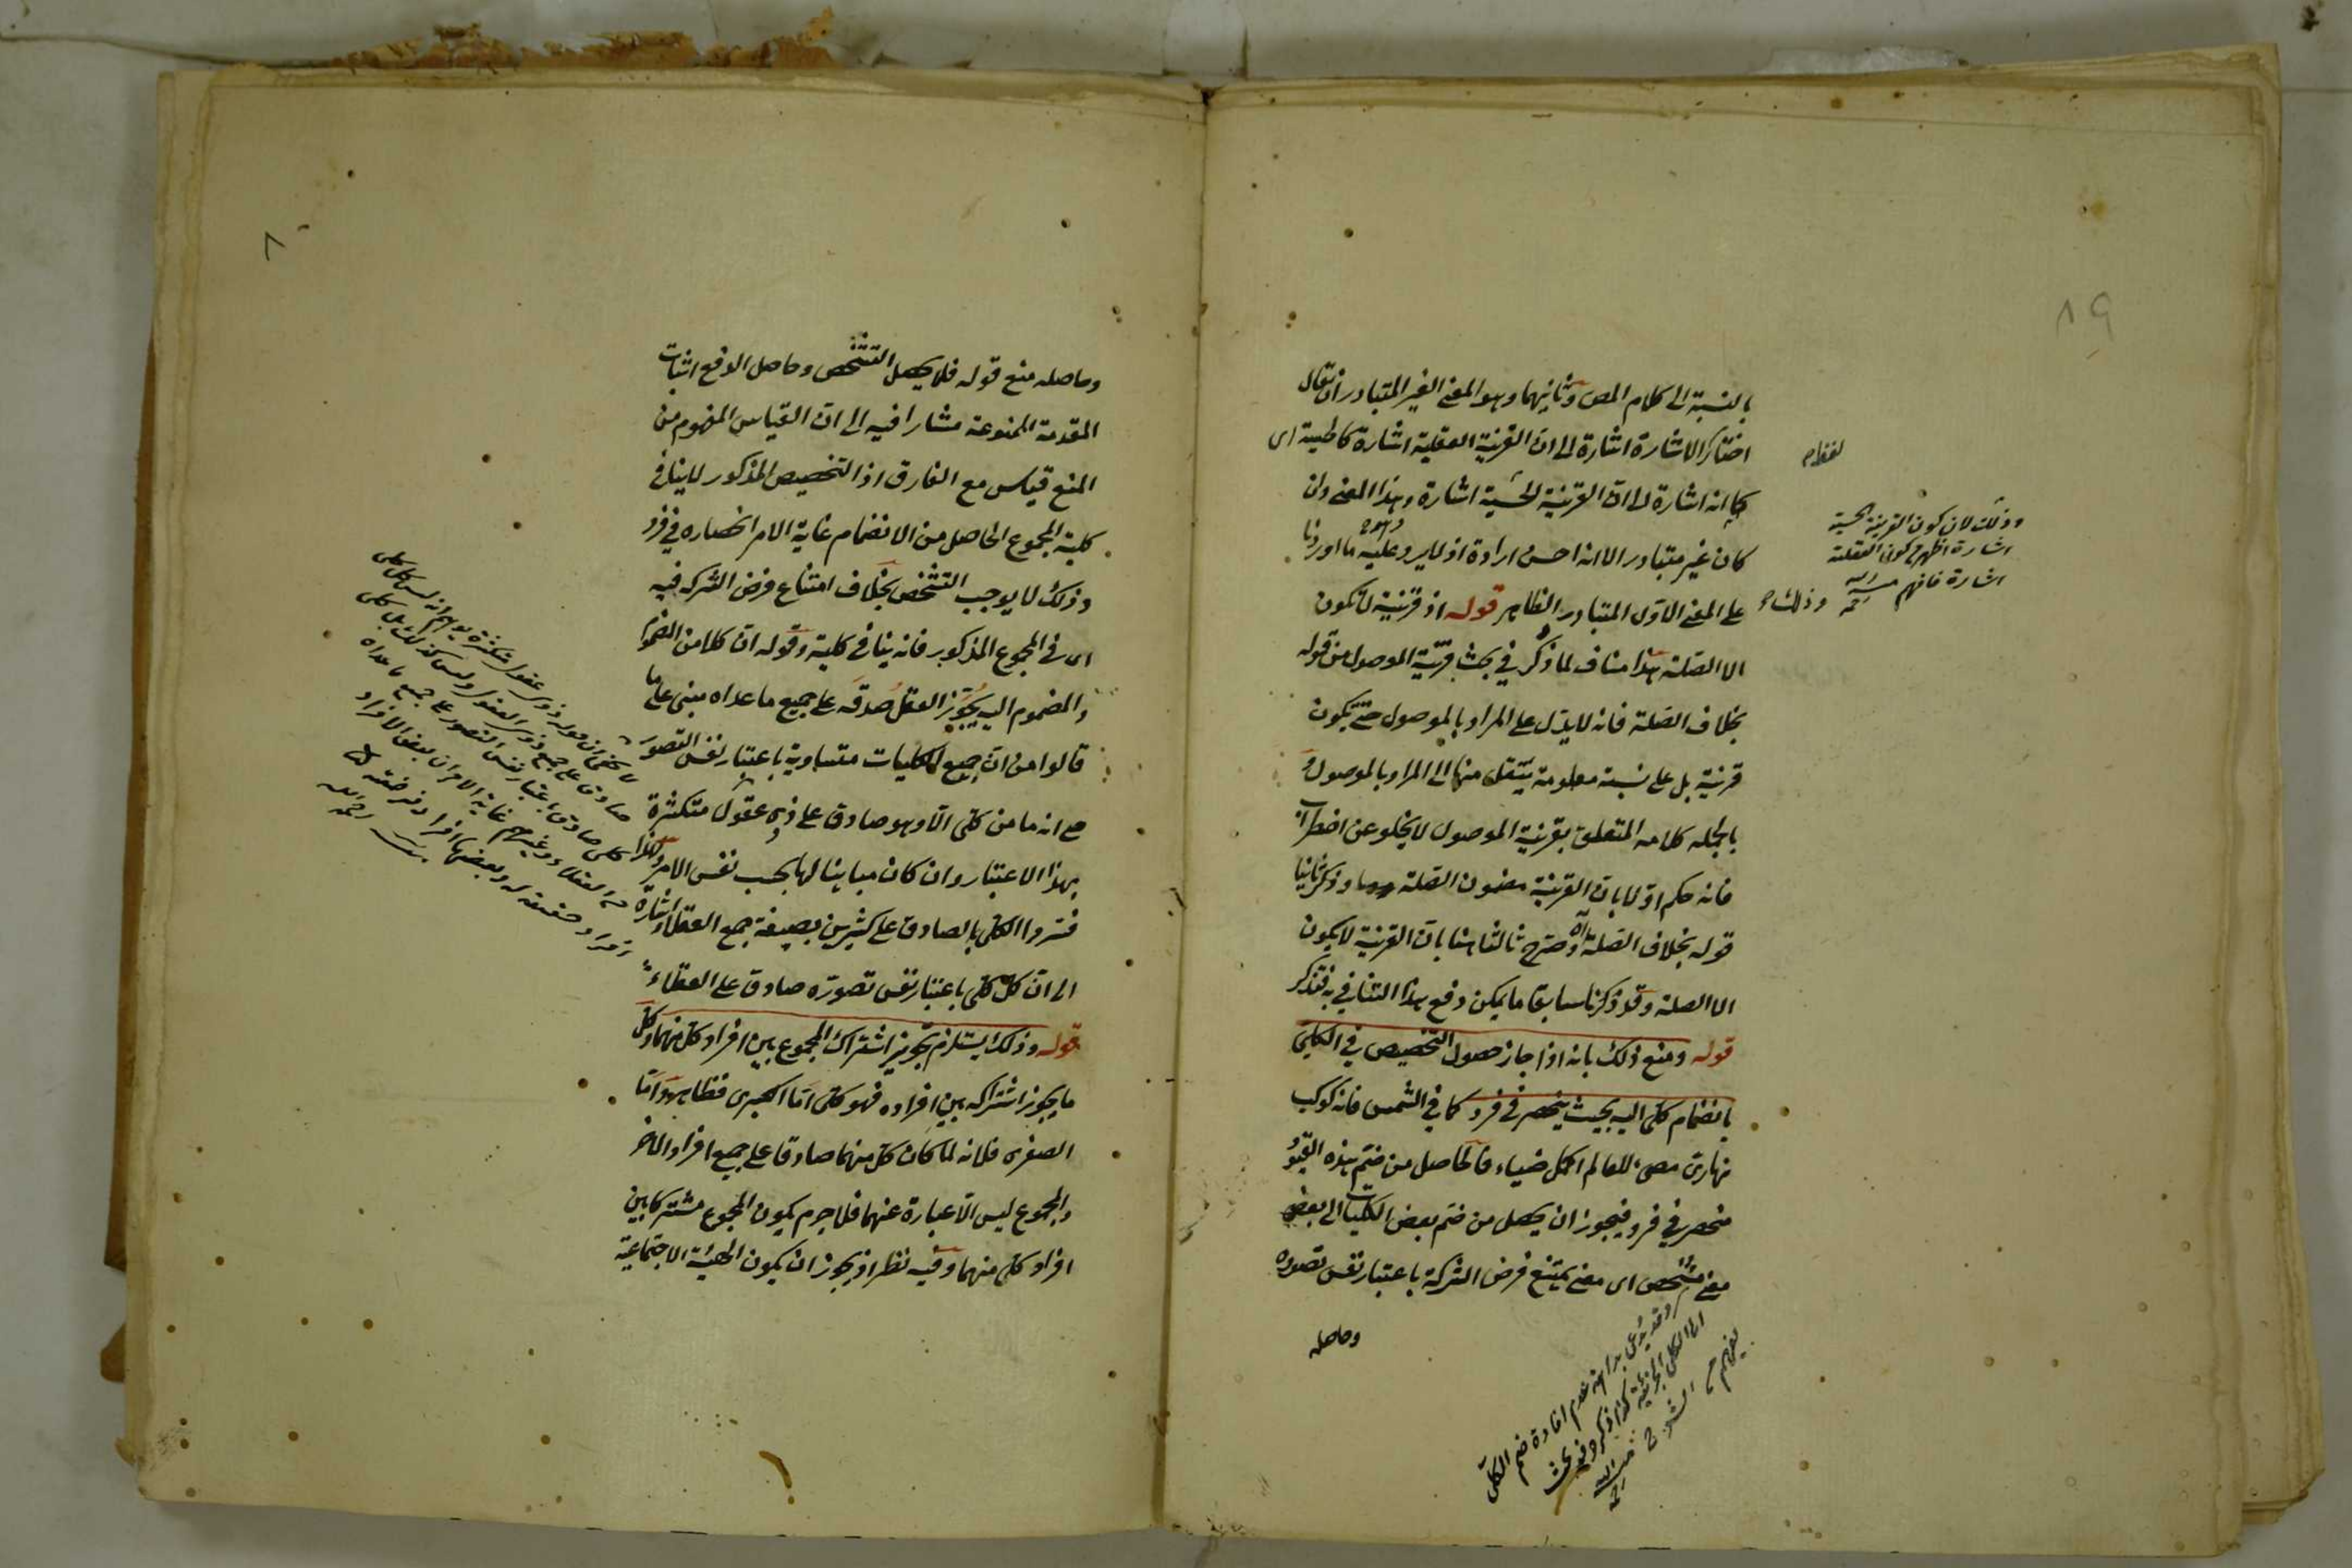 ١٩
بالنسبة الى كلام المص وثانيهما وهو المعنى الغير المتبادر ان يقال
اختار الاشارة اشارة الى ان القرينة العقلية اشارة كالحسية اى
كما انه اشارة الى ان القرينة الحسية اشارة وهذا المعنى وان
كان غير متبادر الا انه احسن ارادة اذ لا يرد عليه ما اوردنا
على المعنى الاول المتبادر الظاهر قوله اذ قرنيته لا تكون
الا الصلة هذا مناف لما ذكر في بحث قرينة الموصول من قوله
بخلاف الصلة فانه لا يدل على المراد بالموصول حتى يكون
قرنية بل على نسبة معلومة ينتقل منها الى المراد بالموصول و
بالجمله كلامه المتعلق بقرينة الموصول لا يخلو عن اضطراب
فانه حكم اولا بان القرينة مضمون الصلة وذكر ثانيا
قوله بخلاف الصلة اه وصرح ثالثا هنا بان القرينة لا يكون
الا الصلة وقد ذكرنا سابقا ما يمكن دفع هذا التنافي به فتذكر
قوله ومنع ذلك بانه اذا جاز حصول التخصيص في الكلي
بانضمام كلي اليه بحيث ينحصر في فرد كما في الشمس فانه كوكب
نهارى مضىء للعالم اكمل ضياء فالحاصل من ضم هذه القيود
منحصر في فرد فيجوز ان يحصل من ضم بعض الكليات الى بعض
معنى مشخص اى معنى يمتنع فرض الشركة باعتبار نفس تصوره
وحاصله
وذلك لان كون القرينة الحسية
اشارة اظهر من كون العقلية
اشارة فافهم منه
وقد يدعى بداهة عدم افادة ضم الكلي
الى الكلي الجزئية كذا ذكره في بحث
٨
وحاصله منع قوله فلا يحصل التشخص وحاصل الدفع اثبات
المقدمة الممنوعة مشارا فيه الى ان القياس المفهوم من
المنع قياس مع الفارق اذ التخصيص المذكور لا ينافى
كلية المجموع الحاصل من الانضمام غاية الامر انحصاره في فرد
وذلك لا يوجب التشخص بخلاف امتناع فرض الشركه فيه
اى في المجموع المذكور فانه ينافى كلية وقوله ان كلا من المضموم
والمضموم اليه يجوز العقل صدقه على جميع ما عداه مبنى على ما
قالوا من ان جميع الكليات متساوية باعتبار نفس التصور
مع انه ما من كلى الا وهو صادق على ذوى عقول متكثرة
بهذا الاعتبار وان كان مباينا لها بحسب نفس الامر ولهذا
فسروا الكلى بالصادق على كثيرين بصيغة جمع العقلاء اشارة
الى ان كل كلى باعتبار نفس تصوره صادق على العقلاء
قوله وذلك يستلزم تجويز اشتراك المجموع بين افراد كل منهما وكل
ما يجوز اشتراكه بين افراده فهو كلى اما الكبرى فظاهرة واما
الصغرى فلانه لما كان كل منهما صادقا على جميع افراد الاخر
والمجموع ليس الا عبارة عنهما فلا جرم يكون المجموع مشتركا بين
افراد كل منهما وفيه نظر اذ يجوز ان يكون الهيئة الاجتماعية